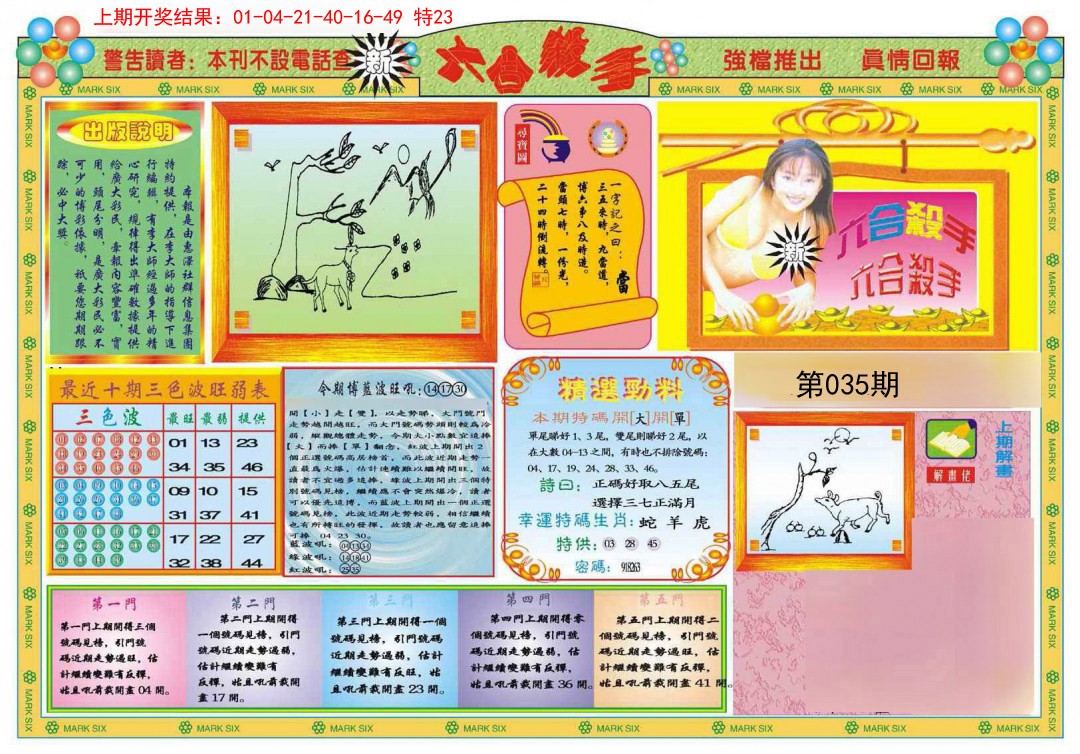 上期开奖结果：01-04-21-40-16-49 特23
警告讀者：本刊不設電話查
新
六合殺手
強檔推出 眞情回報
MARK SIX
出版說明
本報是由惠澤社群信息集團
特約提供，在李大師的指導下進
行編輯，有李大師經過多年的精
心研究，規律得出準確數據提供
給廣大彩民，彙報內容豐富，實
用，頭尾分明，是廣大彩民必不
可少的博彩依據，祇要您期期跟
踪，必中大獎。
尋寶圖
一字記之曰：當
三五來時，九當道，
博六帶八及時邊。
當頭七時，一傍光，
二十四時倒流轉。
新
六合殺手
六合殺手
最近十期三色波旺弱表
三色波 最旺 最弱 提供
01 13 23
34 35 46
09 10 15
31 37 41
17 22 27
32 38 44
今期博藍波旺吼:⑭⑰㉚
開【小】走【雙】，以走勢睇，大門號門
走勢越開越旺，而大門號碼勢頭則較爲冷
弱，縱觀總體走勢，今期大小點數宜追捧
【大】而捧【單】翻念，紅波上期開出2
個正選號碼高居榜首，而此波近期走勢一
直最爲火爆，估計連續難以繼續開旺，故
讀者不宜過多追捧，綠波上期開出三個特
別號碼見榜，繼續應不會突然爆冷，讀者
可以優先追博，而藍波上期開出一個正選
號碼見榜，此波近期走勢較弱，相信繼續
也有所轉旺的發揮，故讀者也應留意追捧
可捧 04 23 30。
藍波吼：04 13 34
綠波吼：14 18 41
紅波吼：25 35
精選勁料
本期特碼開[大]開[單]
單尾睇好1、3尾，雙尾則睇好2尾，以
在大數04-13之間，有時也不排除號碼：
04、17、19、24、28、33、46。
詩曰：正碼好取八五尾
選擇三七正滿月
幸運特碼生肖：蛇 羊 虎
特供：03 28 45
密碼：918263
第035期
上期解畫
解畫佬
第一門
第一門上期開得三個
號碼見榜，引門號
碼近期走勢過旺，估
計繼續變難有反彈，
姑且吼前裁開盡04開。
第二門
第二門上期開得
一個號碼見榜，引門
號碼近期走勢過弱，
估計繼續變難有
反彈，姑且吼前裁開
盡17開。
第三門
第三門上期開得一個
號碼見榜，引門號碼
近期走勢過弱，估計
繼續變難有反旺，姑
且吼前裁開盡23開。
第四門
第四門上期開得零
個號碼見榜，引門號
碼近期走勢過弱，估
計繼續變難有反彈，
姑且吼前裁開盡36開。
第五門
第五門上期開得二
個號碼見榜，引門號
碼近期走勢過旺，估
計繼續變難有反彈，
姑且吼前裁開盡41開。